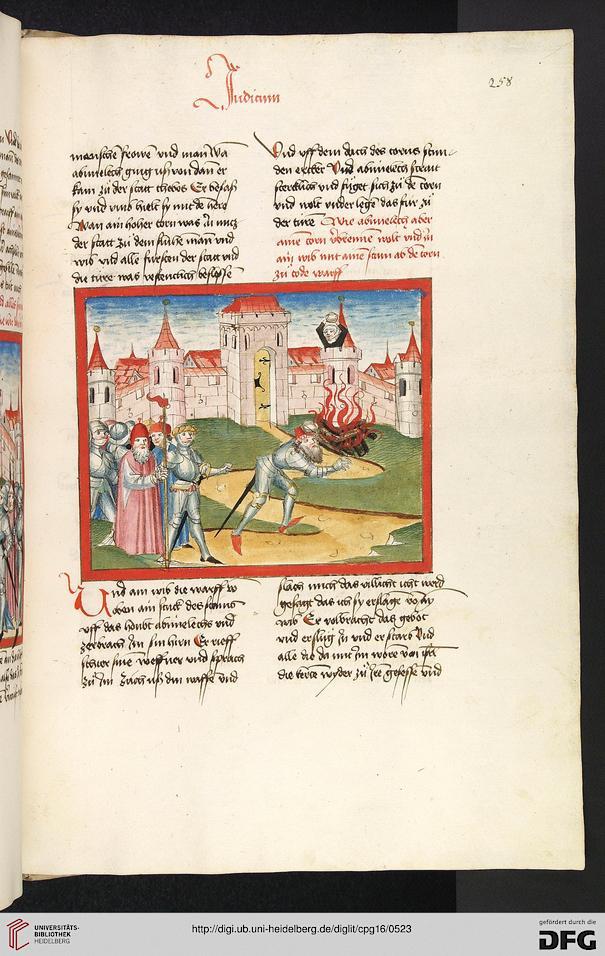 Judicum
258
manische frowe vnd man Da
abimelech gieng vß von dan er
kam zů der statt thebes Er besaß
sy vnd vmb hielt sy mit de here
Wan ain hoher torn was in mitz
der statt Zů dem fluhe man vnd
wib vnd alle fürsten der statt vnd
die türe was vestenclich beslosse
Vnd vff dem dach des torns stůn
den ercker Vnd abimelech streit
stercklich vnd füget sich zů de torn
vnd wolt vnder lege das für zů
der türe Wie abimelech aber
aine torn verbrenne wolt vnd in
ain wib mit aine stain ab de torn
zů tode warff
Vnd ain wib die warff vo
oben ain stuck des stains
vff das houbt abimelechs vnd
zerbrach im sin hirn Er rieff
schier sine weffner vnd sprach
zů im Zuch vß din waffe vnd
slach mich das villicht icht werd
gesagt das ich sy erslage vo ay
wib Er volbracht das gebot
vnd erslůg in vnd er starb Vnd
alle die da mit im wore von isrl
die kerte wyder zů ire gesesse vnd
UNIVERSITÄTS-
BIBLIOTHEK
HEIDELBERG
http://digi.ub.uni-heidelberg.de/diglit/cpg16/0523
gefördert durch die
DFG